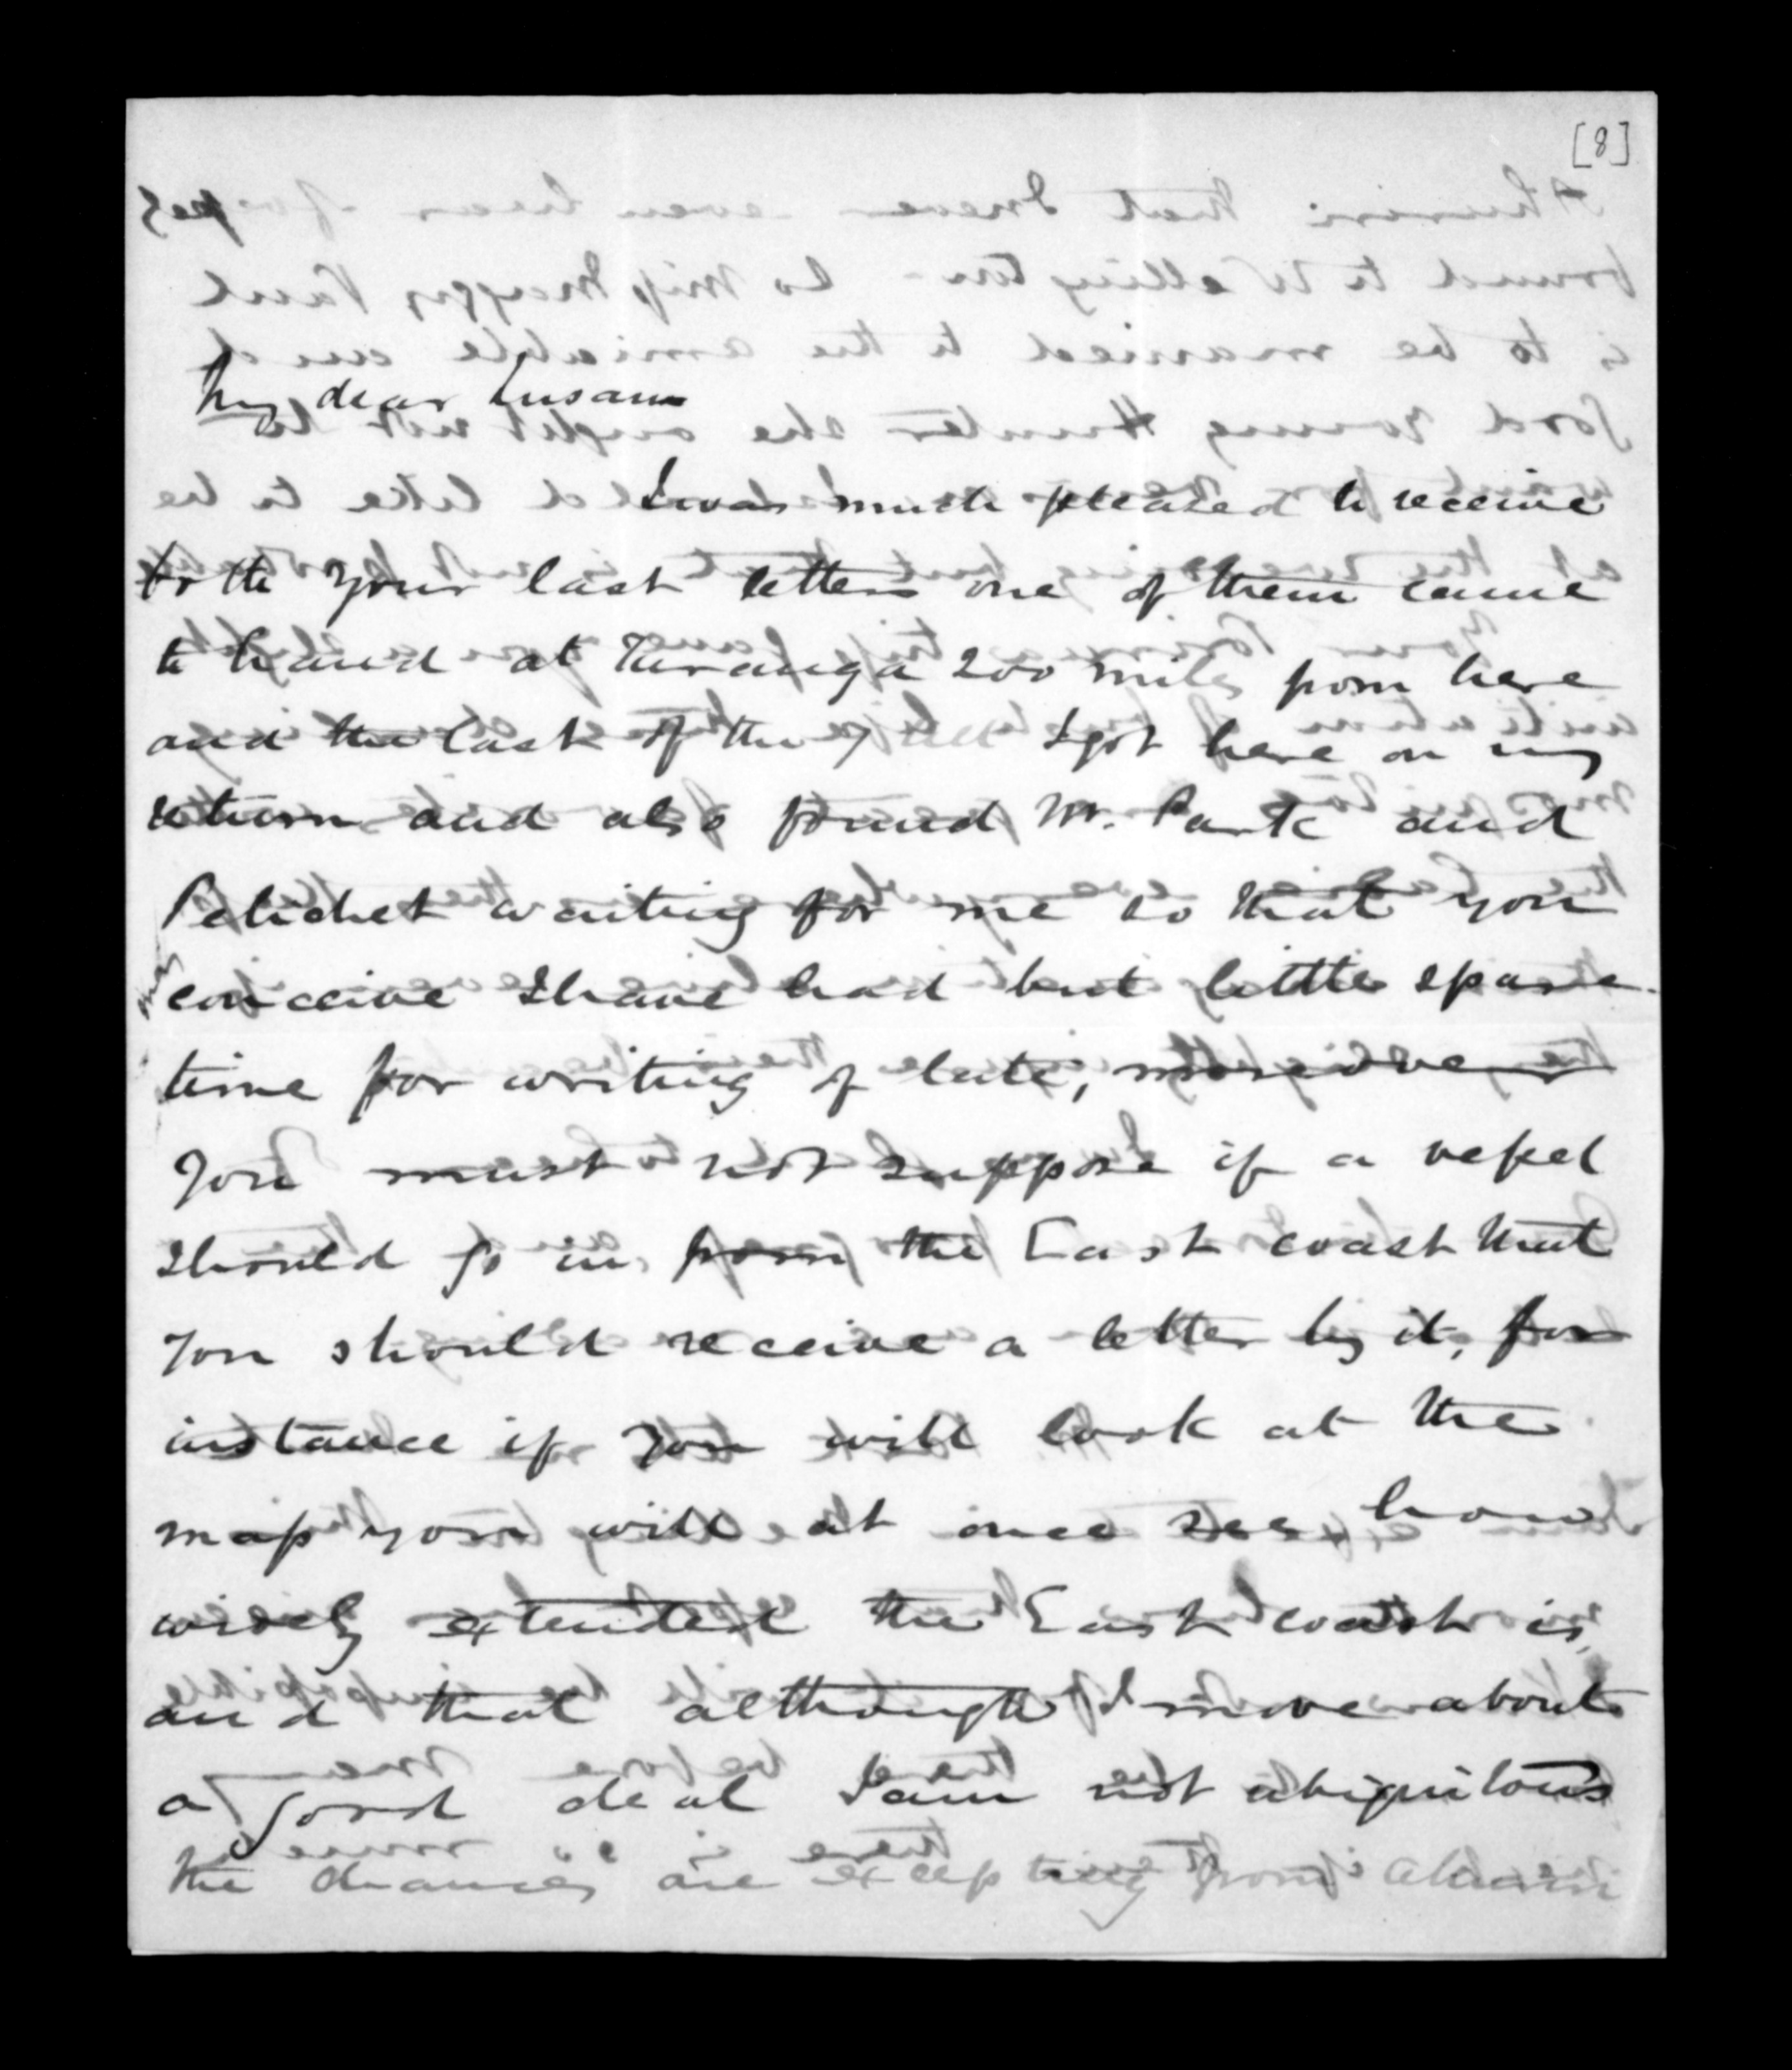 [8]
My dear Susan
I was much pleased to receive
both your last letters one of them came
to hand at Turanga 200 miles from here
and the last of the I got here on my
return and also found Mr. Park and
Pelichet waiting for me so that you
may conceive I have had but little spare
time for writing of late, moreover
you must not suppose if a vessel
should go in from the East coast that
you should receive a letter by it, for
instance if you will look at the
map you will at once see how
widely extended the East coast is,
and that although I move about
a good deal I am not ubiquitous
the chances are excepting from Ahuriri